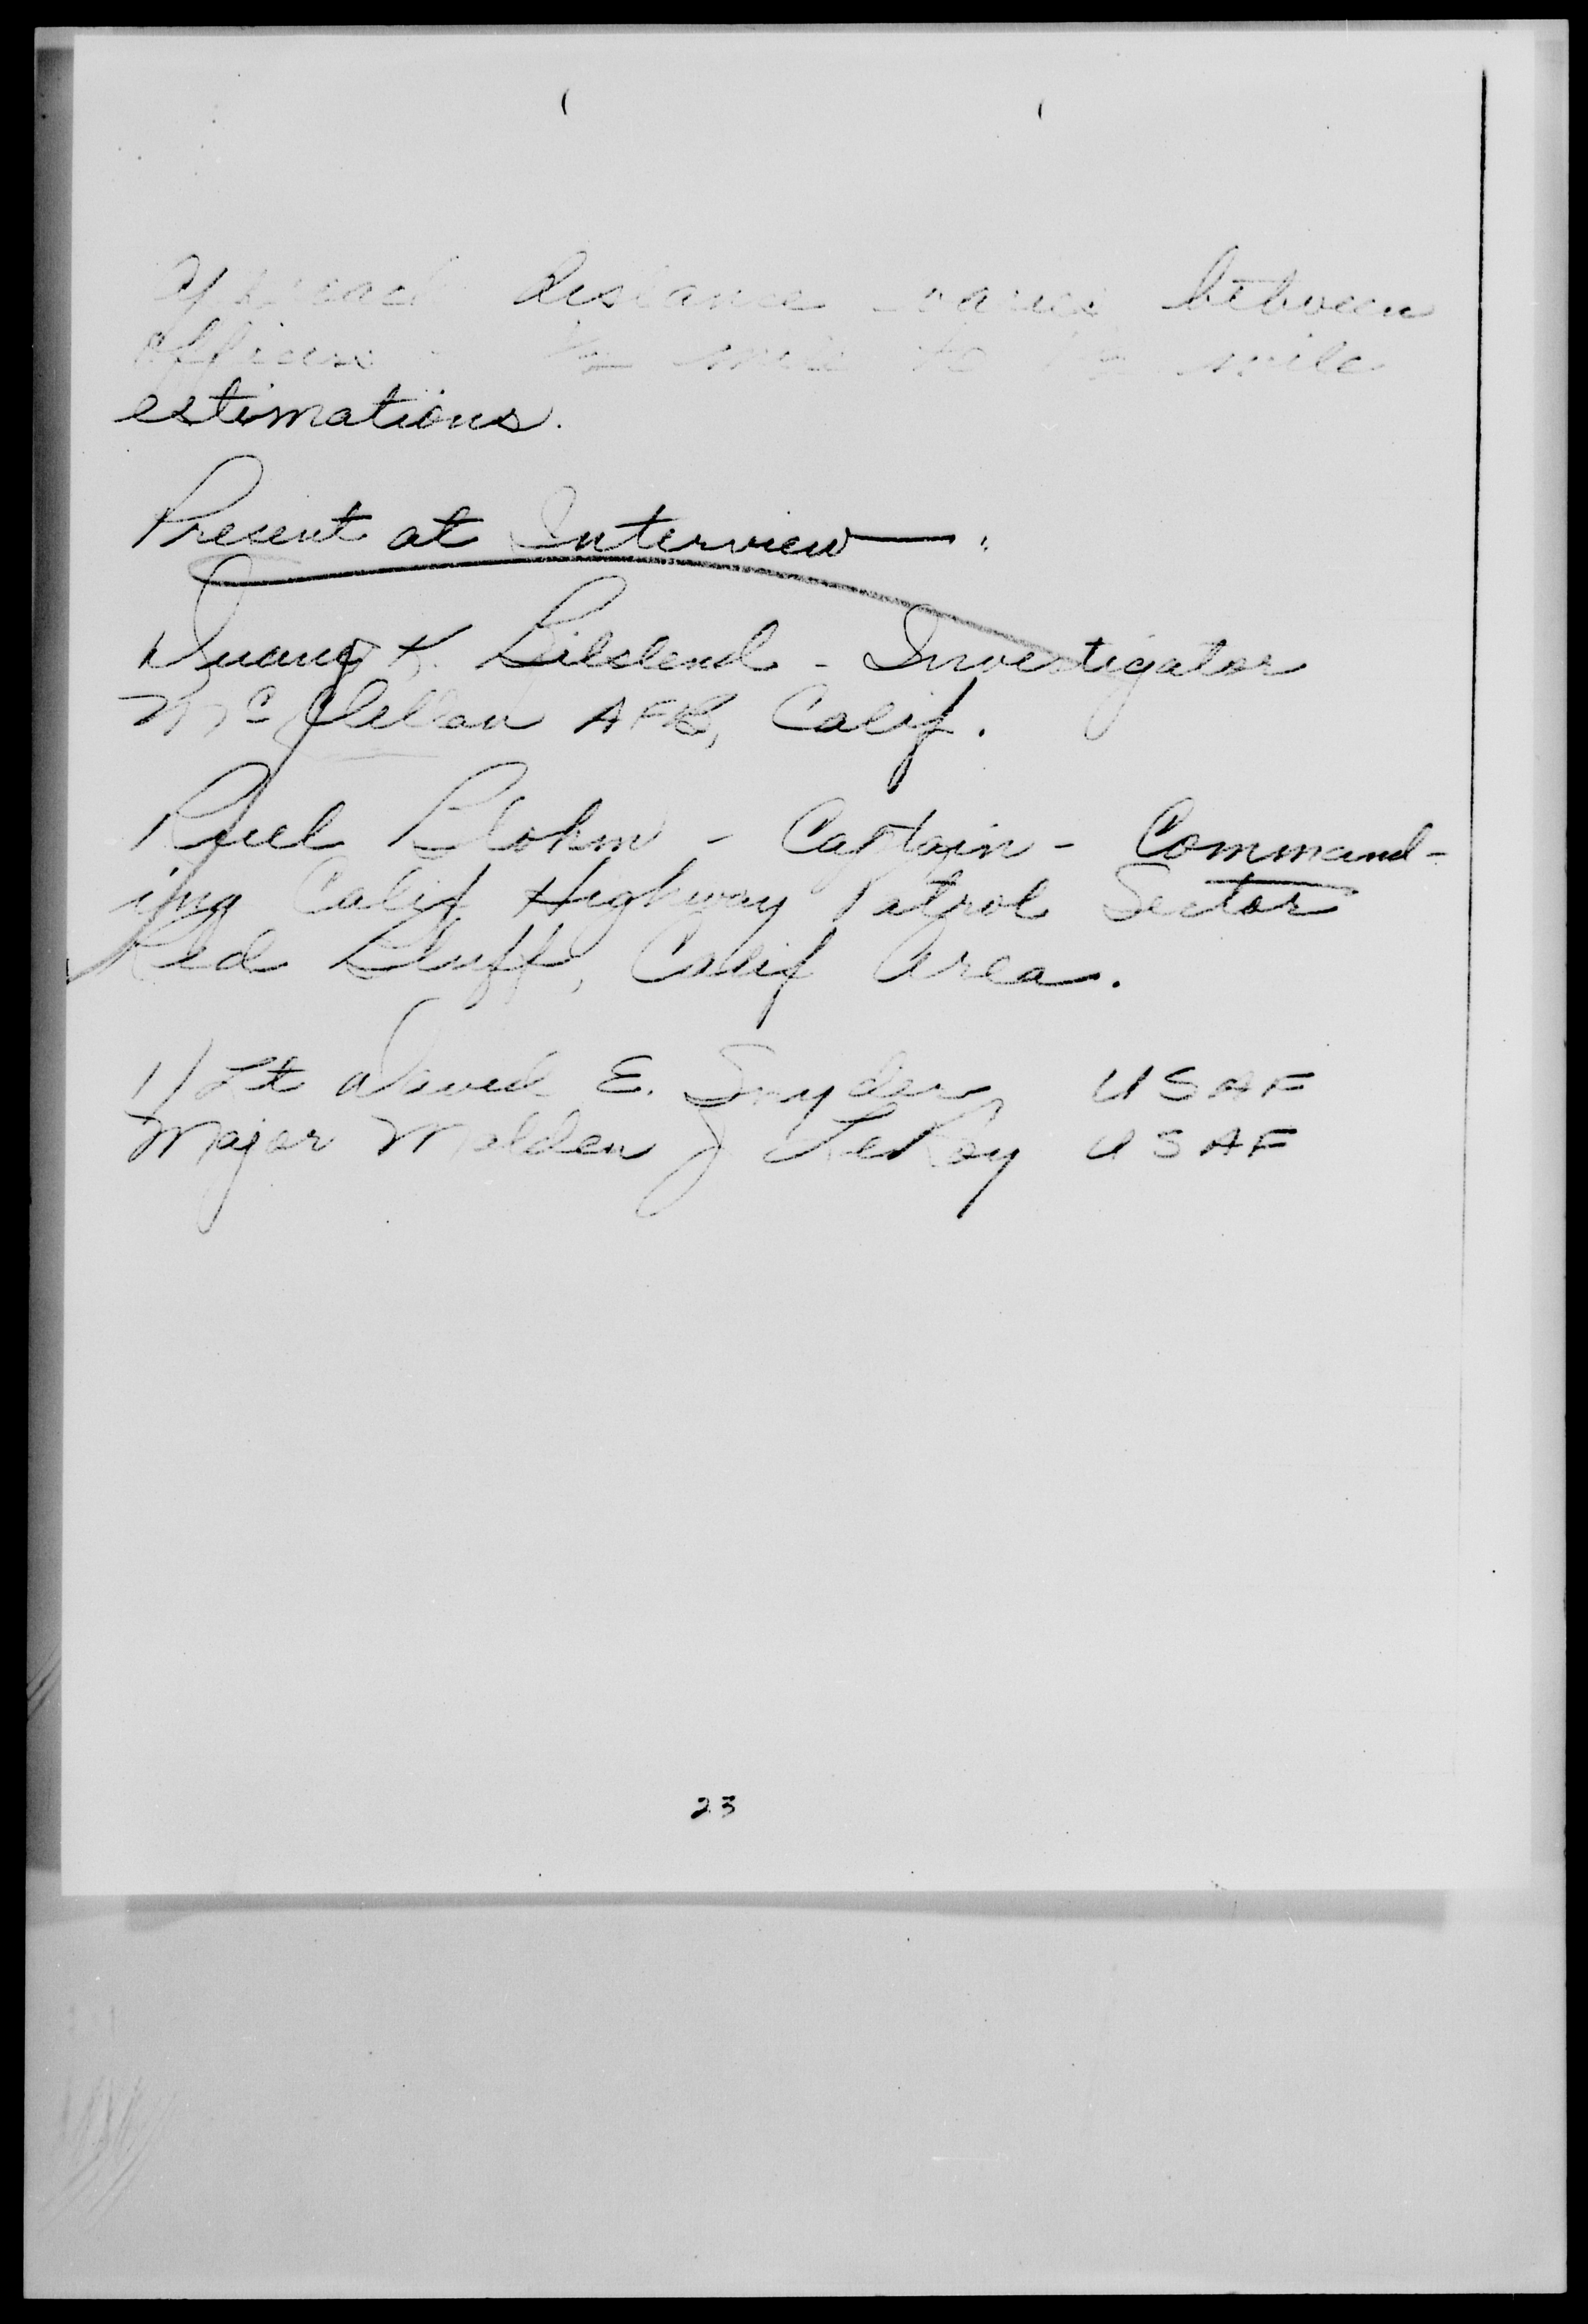 approach distance varies between
officers - mile to mile
estimations.
Present at Interview :
K. - Investigator
McClellan AFB, Calif.
Blohm - Captain - Command-
ing Calif Highway Patrol Sector
Red Bluff, Calif Area.
1/Lt David E. Snyder, USAF
Major Melden J LeRoy USAF
23